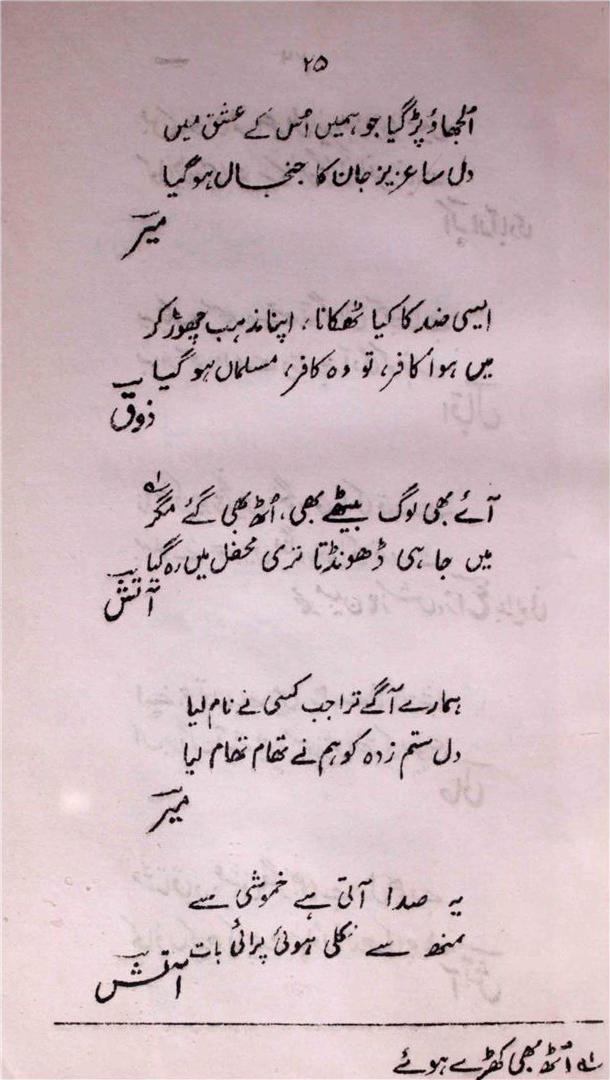 ۲۵
الجھاؤ پڑ گیا جو ہمیں اُس کے عشق میں
دل سا عزیز جان کا جنجال ہو گیا
میر
ایسی ضد کا کیا ٹھکانا، اپنا مذہب چھوڑ کر
میں ہوا کافر، تو وہ کافر، مسلماں ہو گیا
ذوق
آئے بھی لوگ بیٹھے بھی، اُٹھ بھی گئے مگر ؎۱
میں جا ہی ڈھونڈتا تری محفل میں رہ گیا
آتش
ہمارے آگے ترا جب کسی نے نام لیا
دل ستم زدہ کو ہم نے تھام تھام لیا
میر
یہ صدا آتی ہے خموشی سے
منھ سے نکلی ہوئی پرائی بات
آتش
؎۱ اُٹھ بھی کھڑے ہوئے